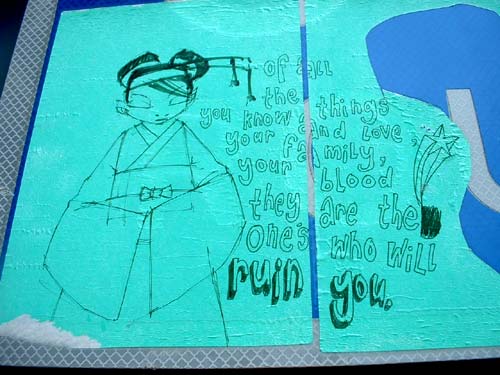 of all
the things
you know and love,
your family,
your blood
they are the
one's who will
ruin you.